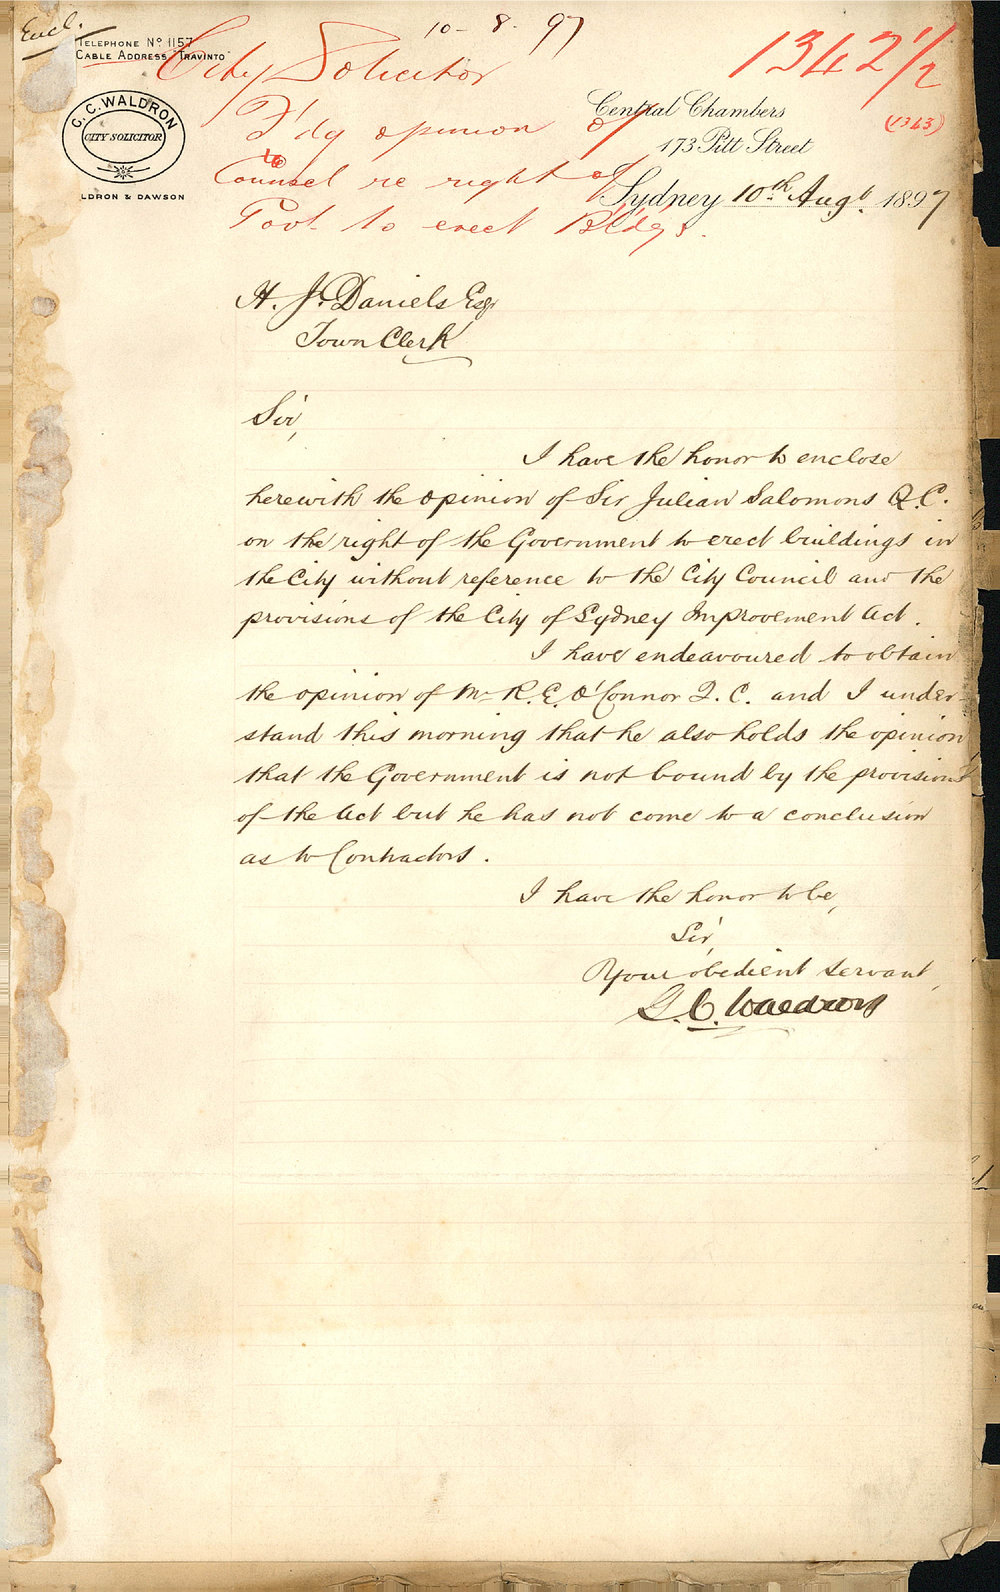 Encl.
10 - 8 - 97
TELEPHONE No. 1157
CABLE ADDRESS "TRAVINTO"
C. C. WALDRON
CITY SOLICITOR
LDRON & DAWSON
City Solicitor
F'dg opinion of
Counsel re right of
Govt to erect Bldgs.
1342 1/2
(1343)
Central Chambers
173 Pitt Street
Sydney 10th Augt. 1897
H. J. Daniels Esqr
Town Clerk
Sir,
I have the honor to enclose
herewith the opinion of Sir Julian Salomons Q.C.
on the right of the Government to erect buildings in
the City without reference to the City Council and the
provisions of the City of Sydney Improvement Act.
I have endeavoured to obtain
the opinion of Mr R. E. O'Connor Q. C. and I under
stand this morning that he also holds the opinion
that the Government is not bound by the provisions
of the Act but he has not come to a conclusion
as to Contractors.
I have the honor to be,
Sir,
Your obedient servant,
G. C. Waldron